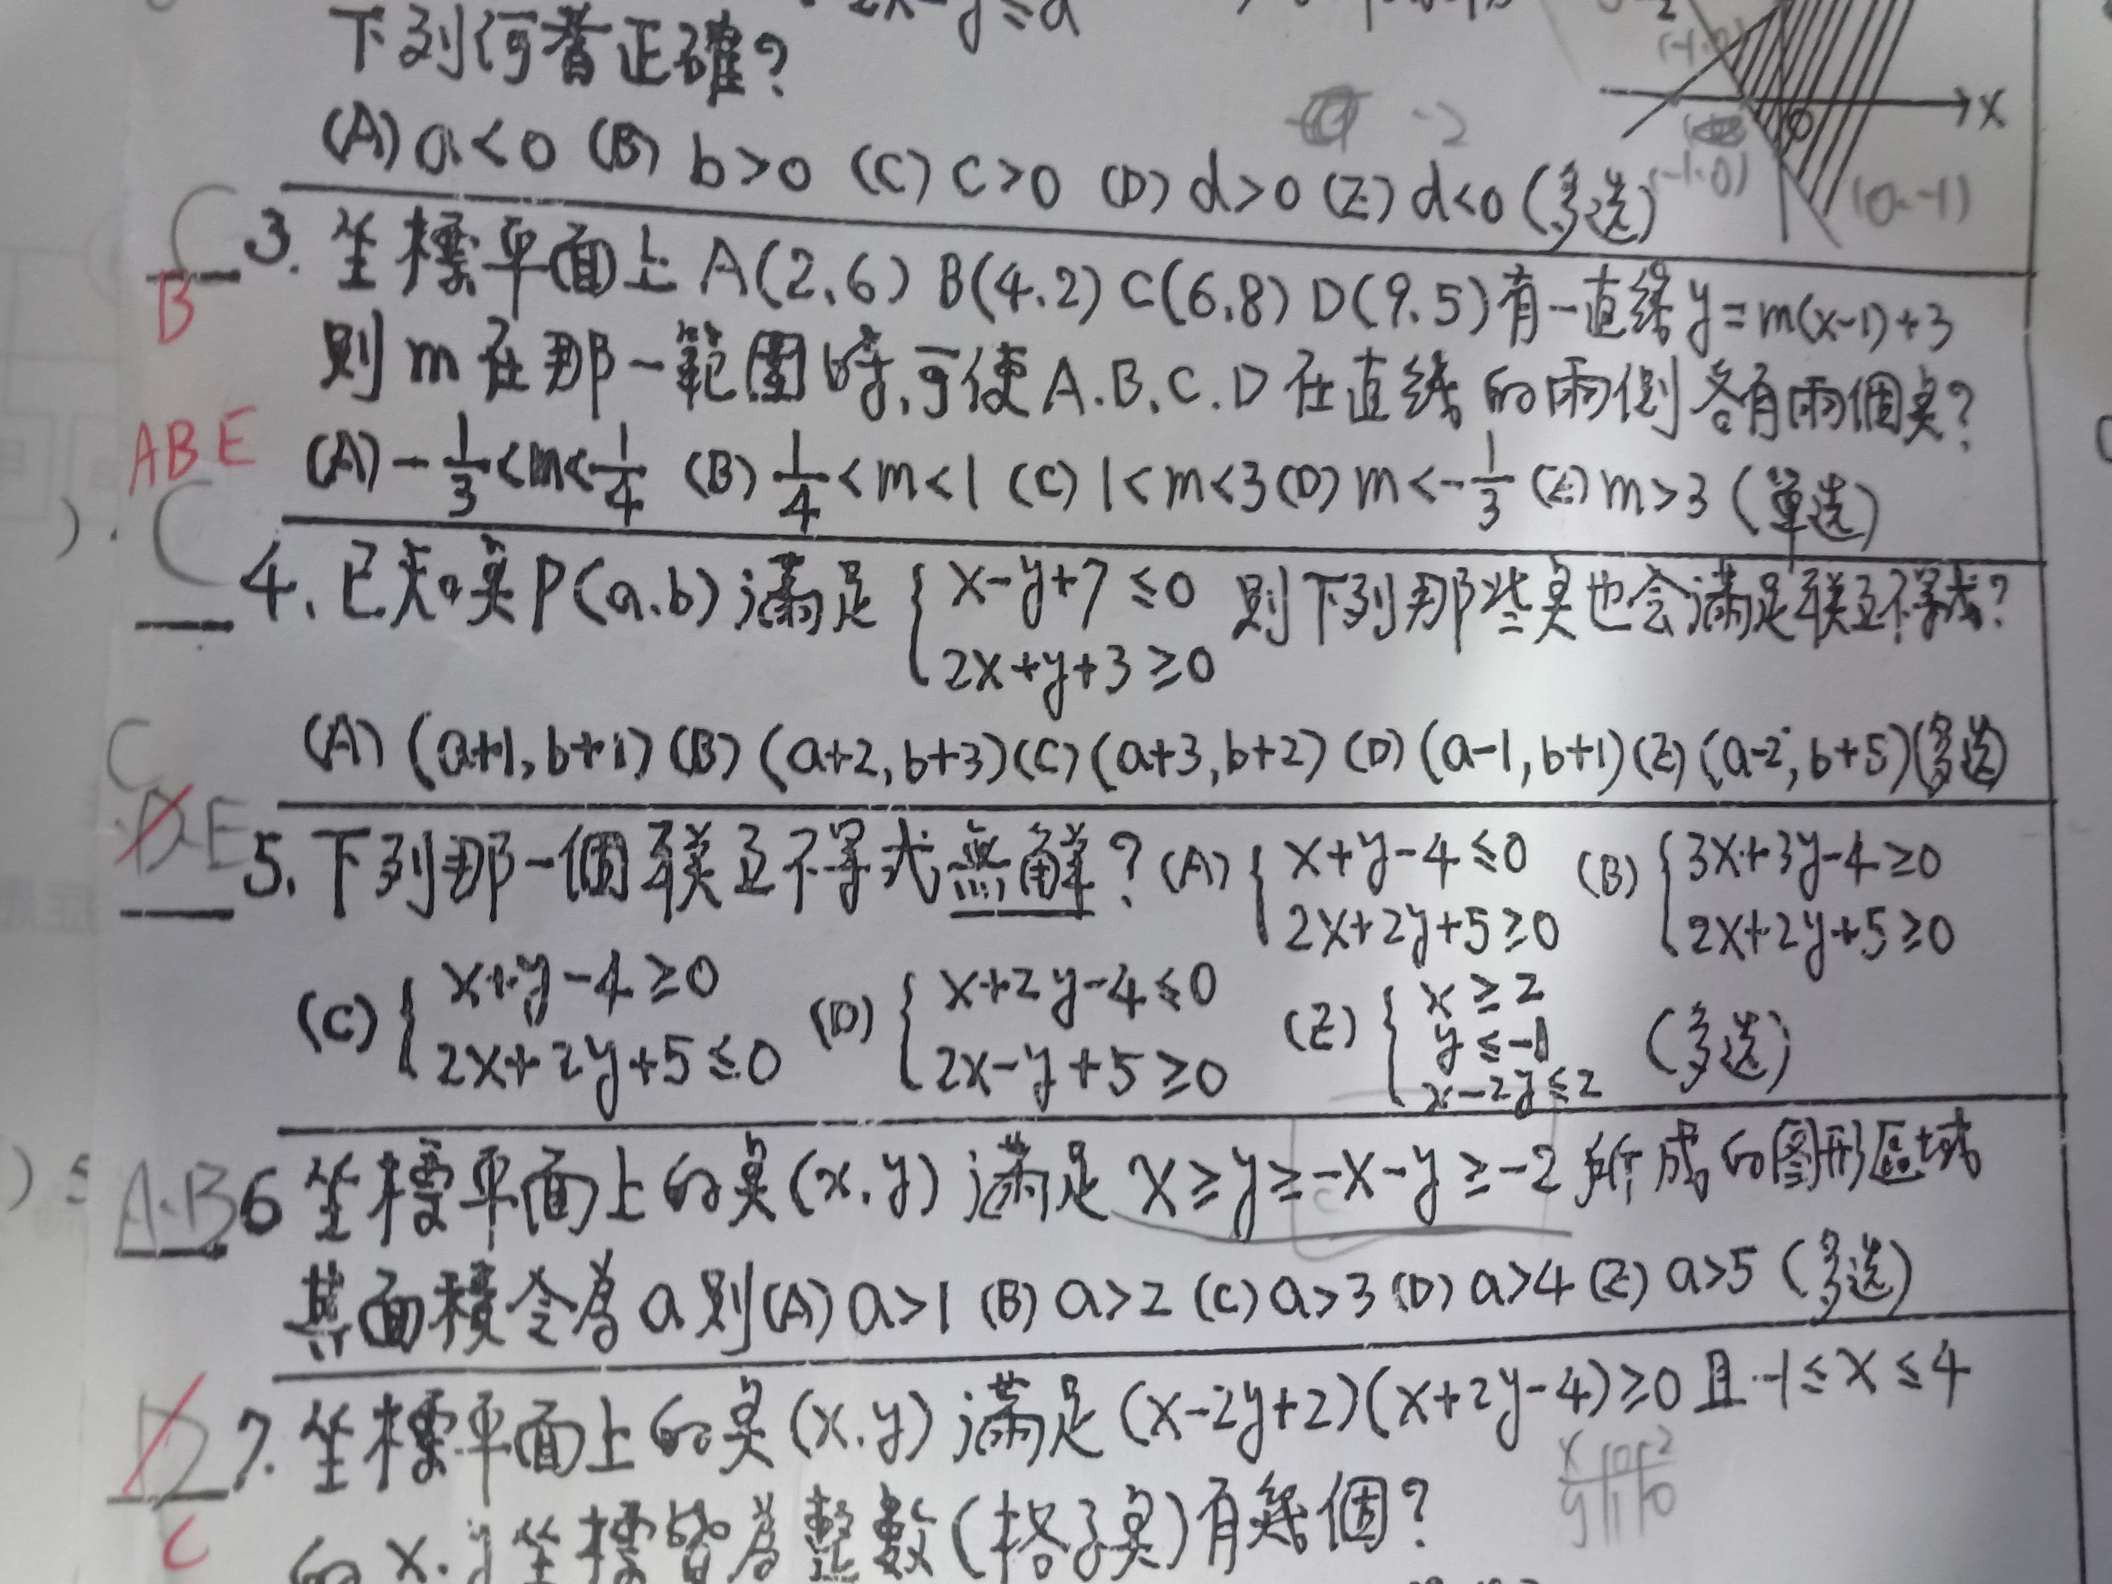 下列何者正確?
x
(A) a<0 (B) b>0 (C) c>0 (D) d>0 (E) d<0 (多选)
-2
(-1.0)
(0.-1)
C
B
3. 坐標平面上 A(2.6) B(4.2) C(6.8) D(9.5) 有一直線 y=m(x-1)+3
則 m 在那一範圍時,可使 A.B.C.D 在直线的兩側各有兩個奌?
ABE
(A) -1/3<m<1/4 (B) 1/4<m<1 (C) 1<m<3 (D) m<-1/3 (E) m>3 (單选)
C
4. 已知奌P(a.b) 滿足 { x-y+7≤0 則下列那些奌也会滿足联立不等式?
2x+y+3≥0
(A) (a+1, b+1) (B) (a+2, b+3) (C) (a+3, b+2) (D) (a-1, b+1) (E) (a-2, b+5) (多选)
C
E
5. 下列那一個联立不等式無解? (A) { x+y-4≤0 (B) { 3x+3y-4≥0
2x+2y+5≥0 2x+2y+5≥0
(C) { x+y-4≥0 (D) { x+2y-4≤0 (E) { x≥2
y≤-1 (多选)
2x+2y+5≤0 2x-y+5≥0 x-2y≤2
A.B
6 坐標平面上的奌(x.y) 滿足 x≥y≥-x-y≥-2 所成的图形區域
其面積令為 a 則 (A) a>1 (B) a>2 (C) a>3 (D) a>4 (E) a>5 (多选)
D
C
7. 坐標平面上的奌(x.y) 滿足 (x-2y+2)(x+2y-4)≥0 且 -1≤x≤4
x 0 2
y 1 0
的 x.y 坐標皆為整數(格子奌)有幾個?